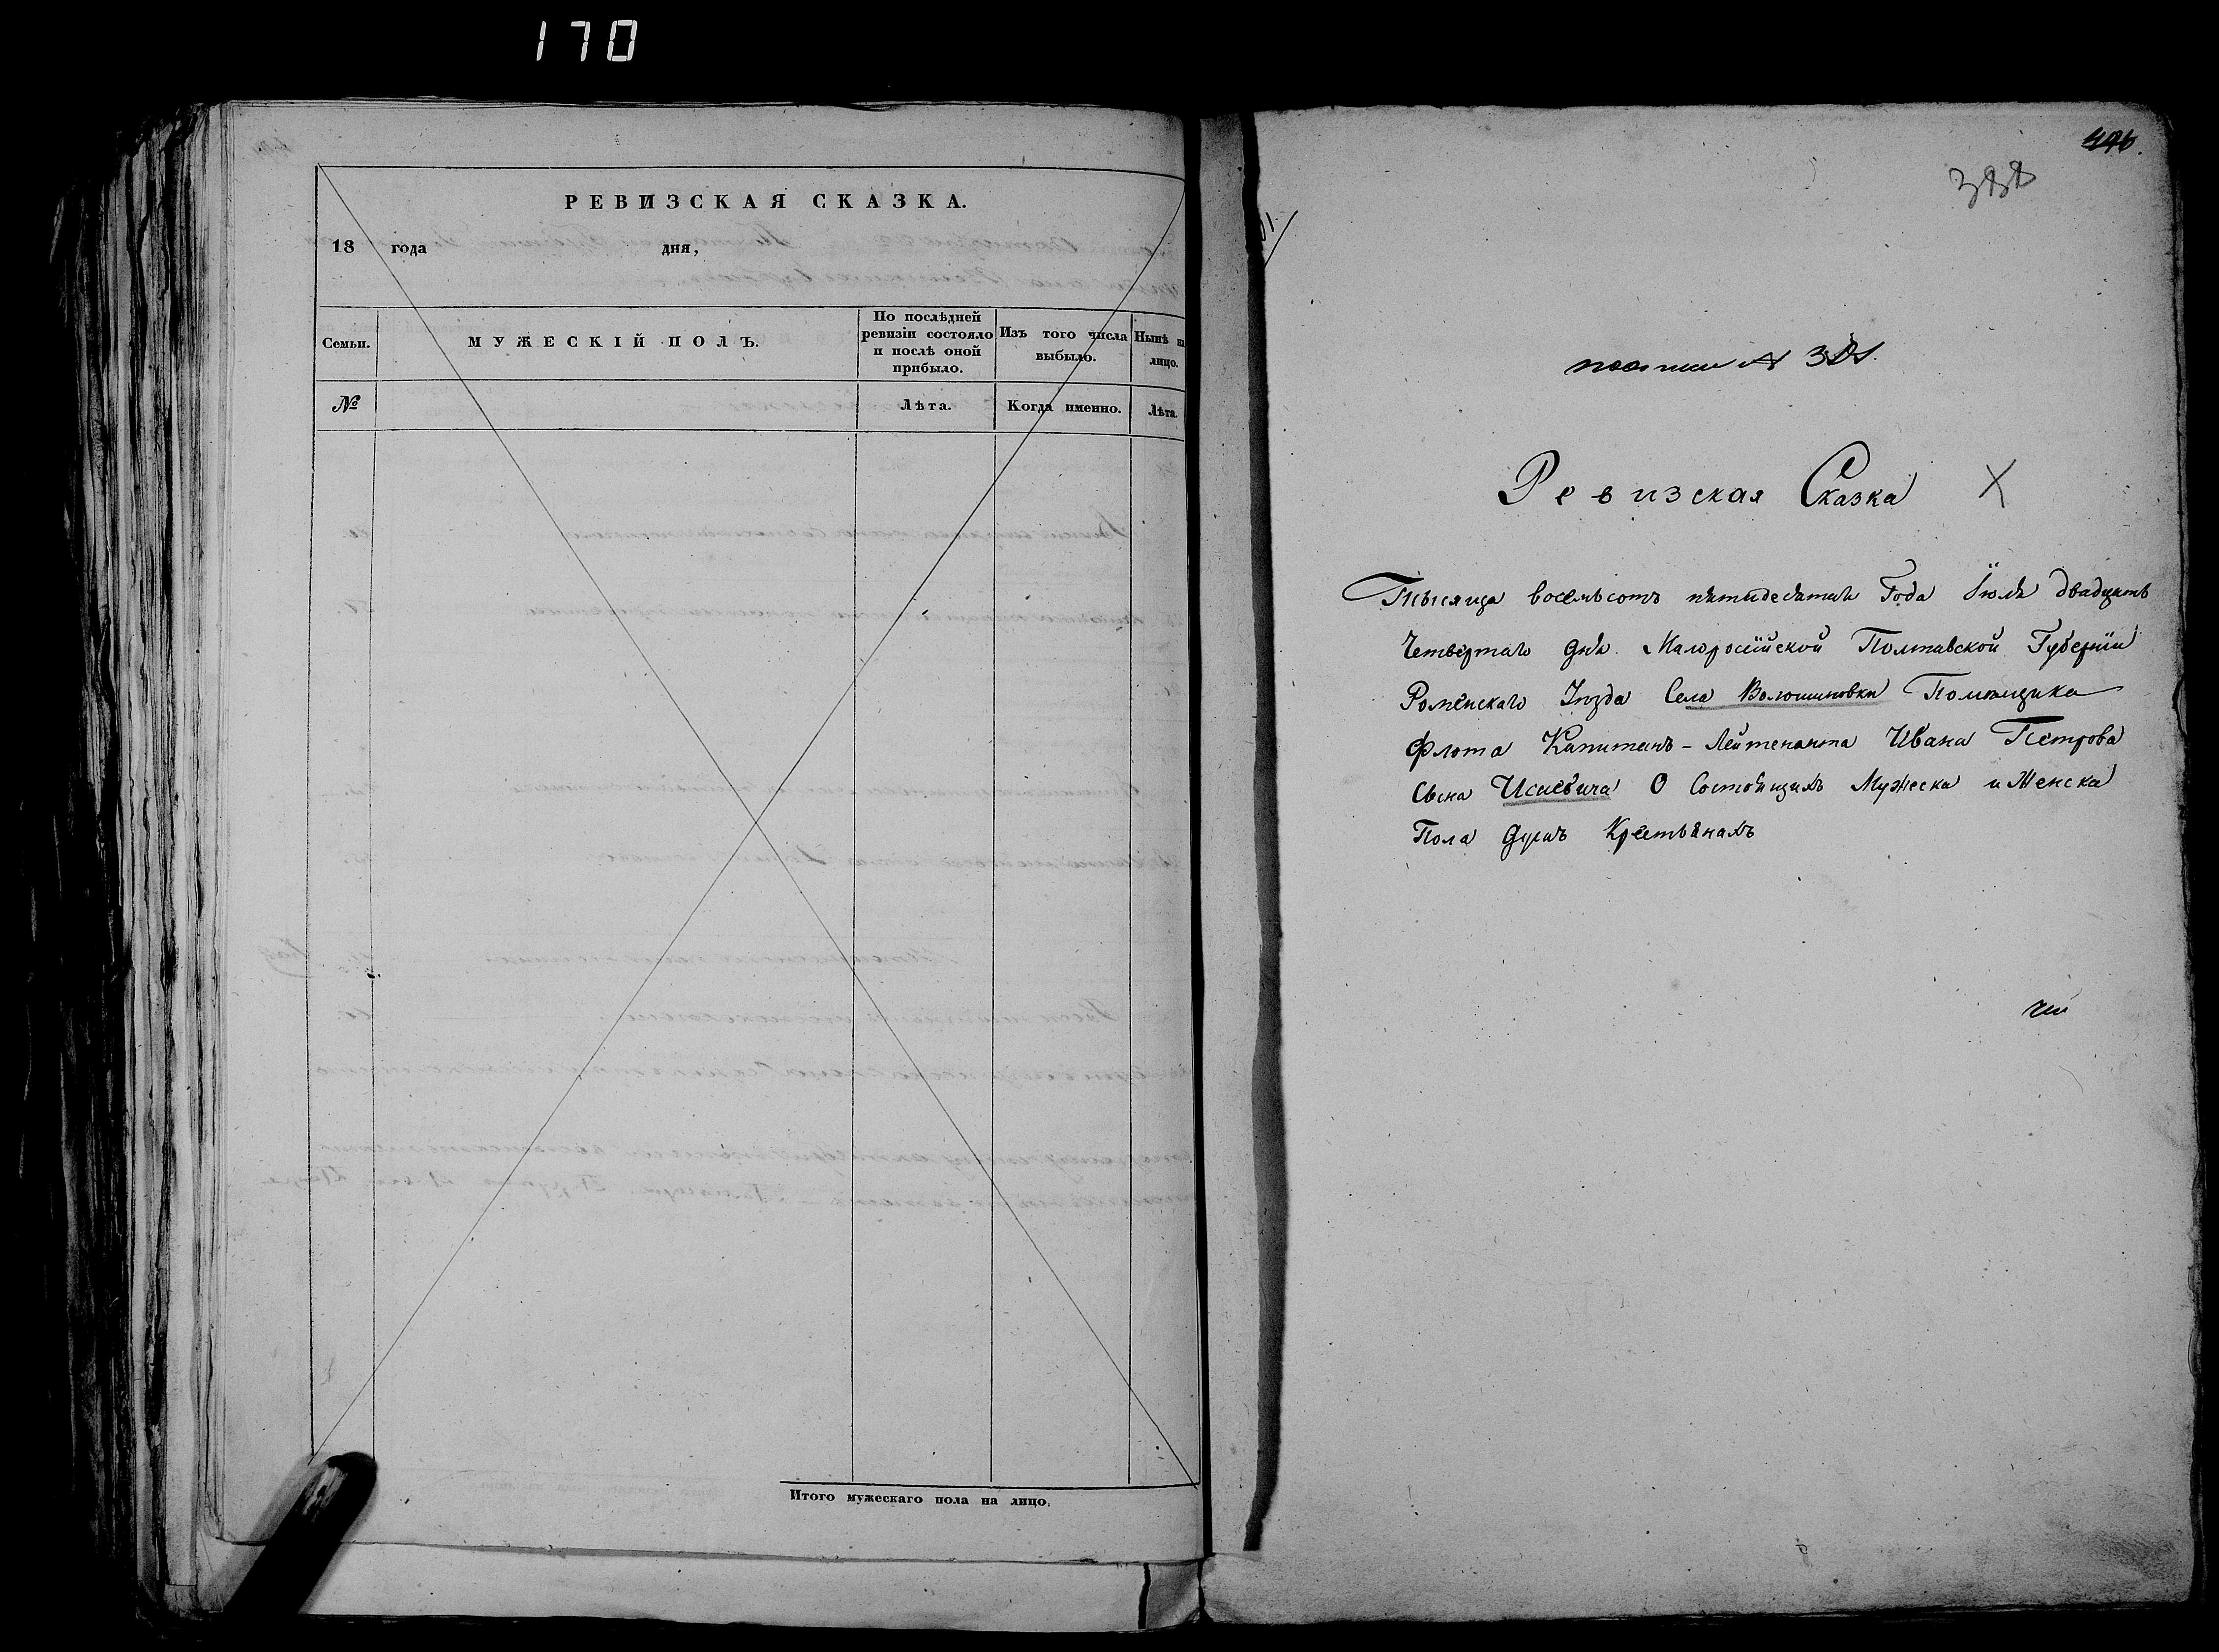 170
РЕВИЗСКАЯ СКАЗКА.
18 года дня,
Семьи.
МУЖЕСКІЙ ПОЛЪ.
По послѣдней
ревизіи состояло
и послѣ оной
прибыло.
Изъ того числа
выбыло.
Нынѣ на
лицо.
№
Лѣта.
Когда именно.
Лѣта.
Итого мужескаго пола на лицо.
446.
388
Ревизская Сказка X
Тысяча восемьсотъ пятидесятаго Года Іюля двадцать
Четвертаго дня. Малоросiйской Полтавской Губерніи
Роменскаго Уѣзда Села Волошиновки Помѣщика
Флота Капитанъ-Лейтенанта Ивана Петрова
Сына Исаевича О Состоящихъ Мужеска и Женска
Пола душъ Крестьянахъ